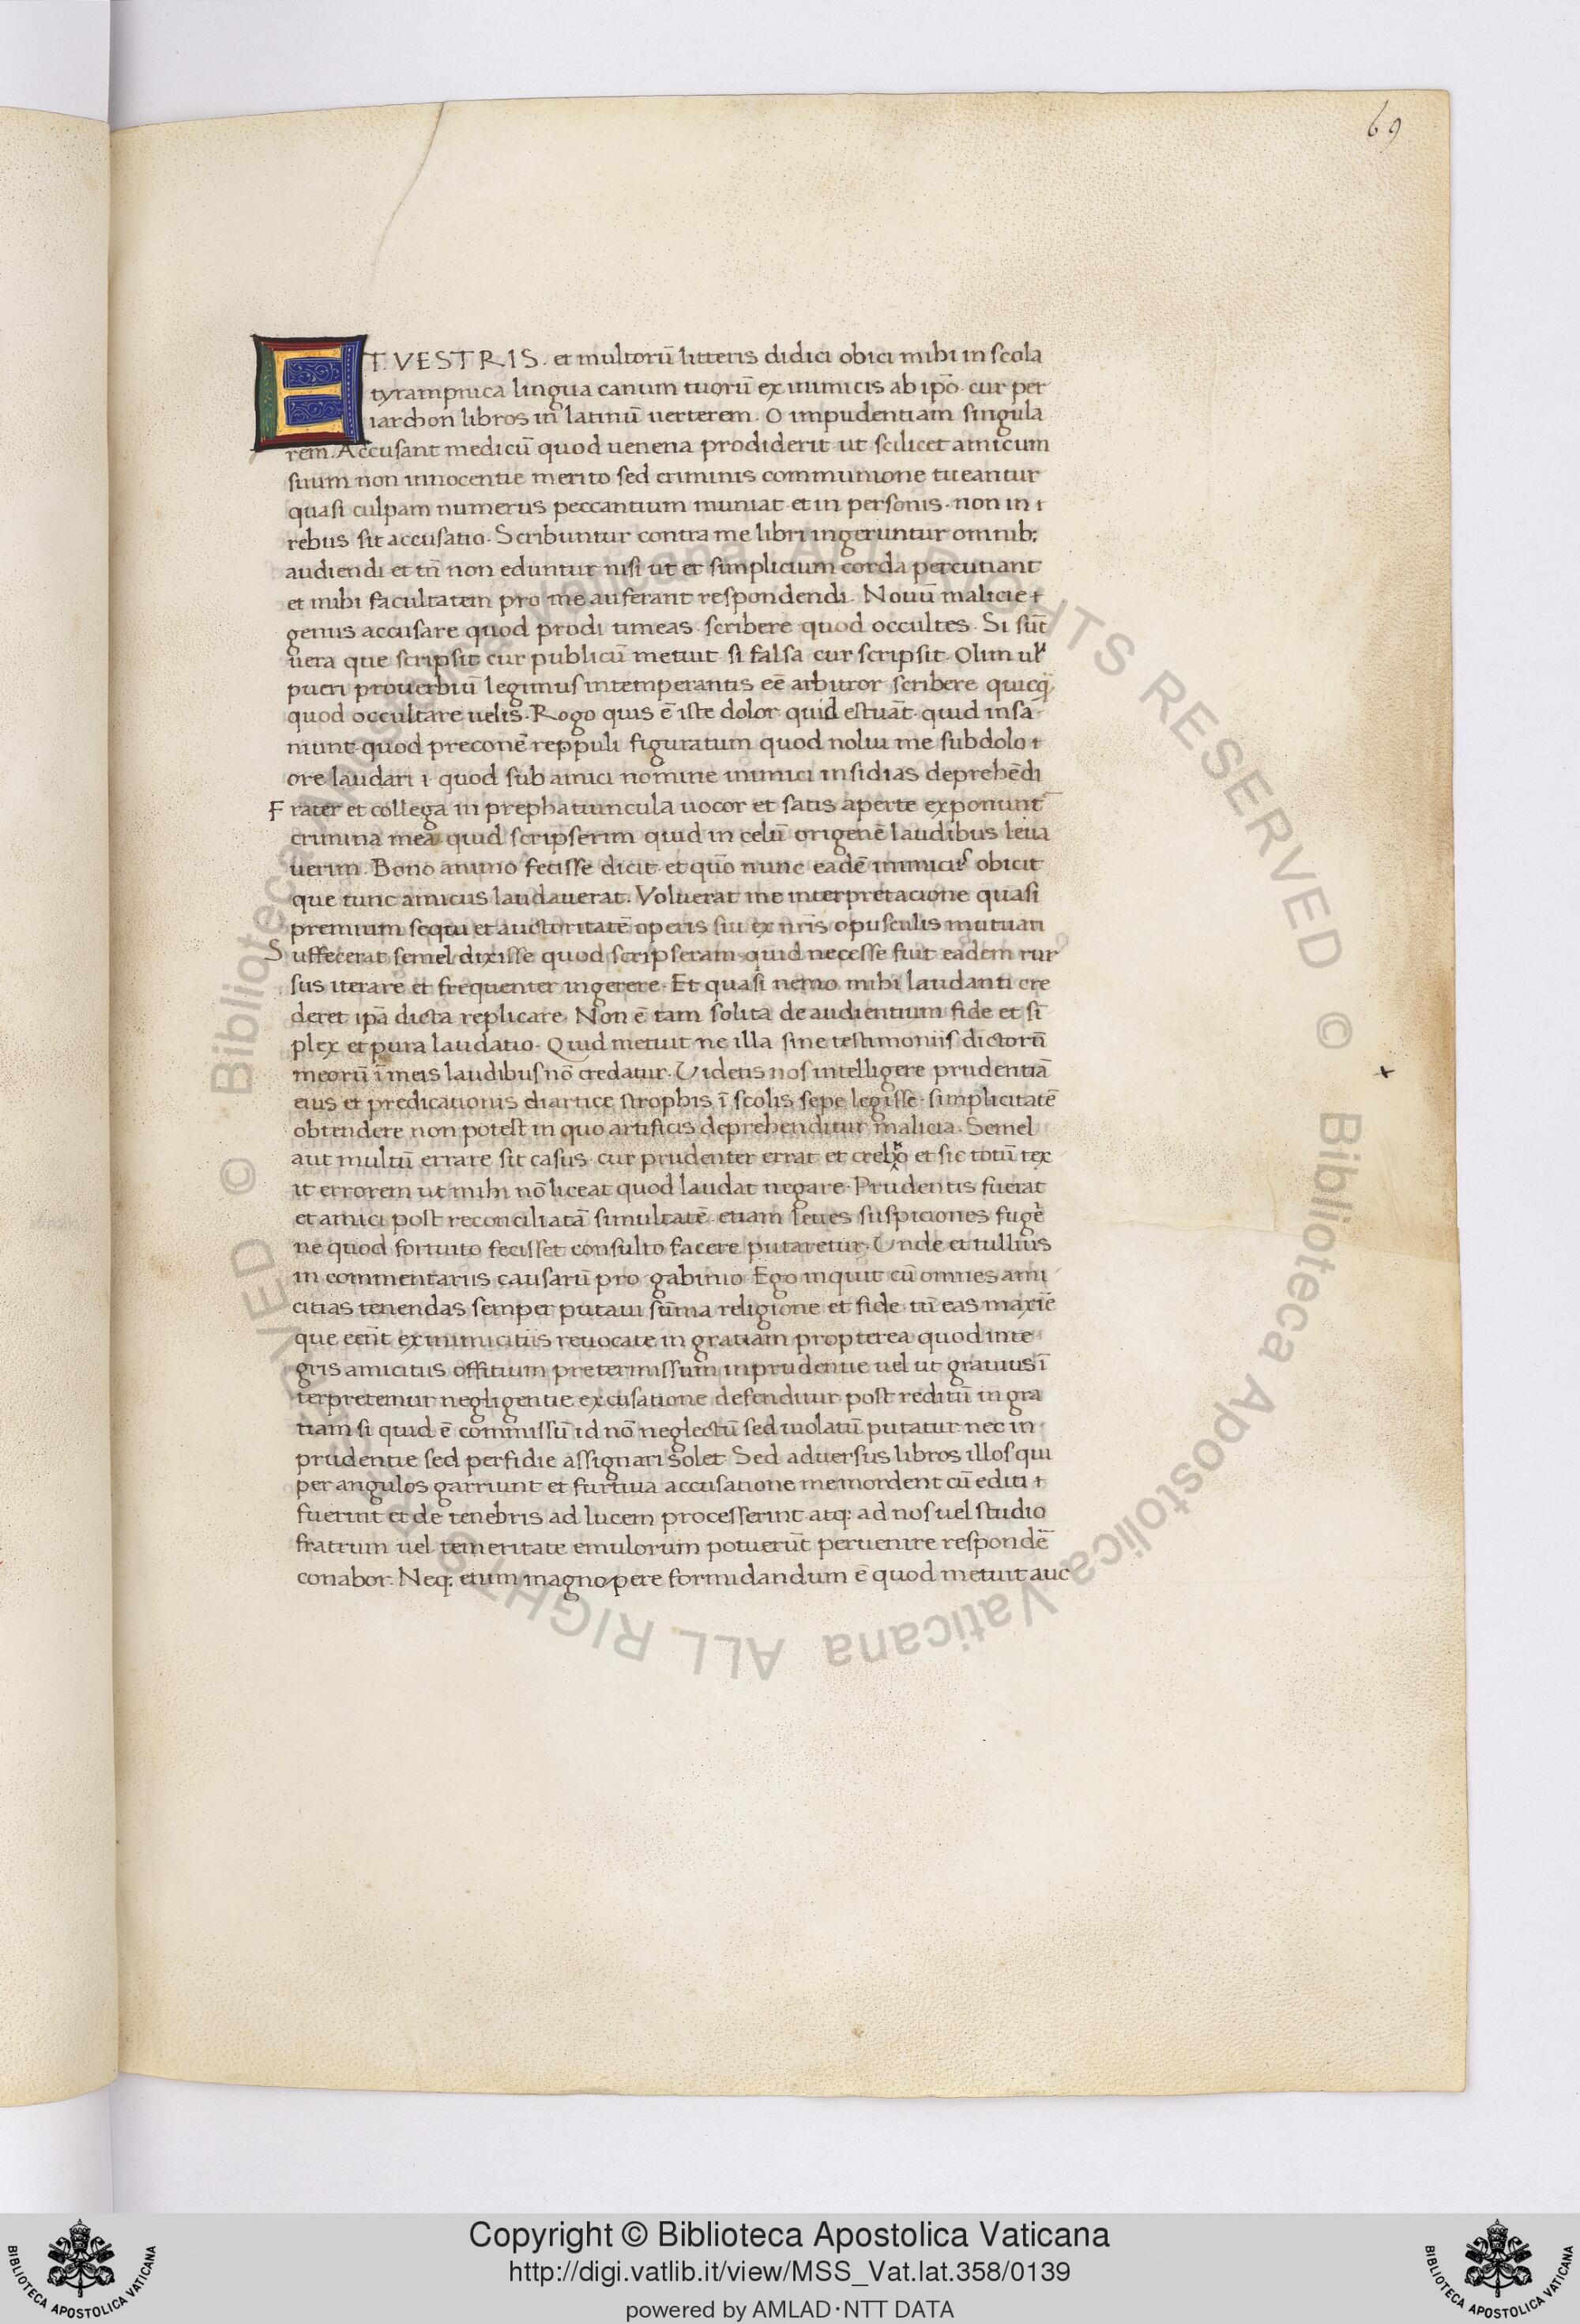 69
ET VESTRIS. et multorū litteris didici obici mihi in scola
tyrampnica lingua canum tuorū ex inimicis ab ipō. cur per
iarchon libros in latinū uerterem. O impudentiam singula
rem. Accusant medicū quod uenena prodiderit ut scilicet amicum
suum non innocentie merito sed criminis communione tueantur
quasi culpam numerus peccantium muniat et in personis. non in
rebus sit accusatio. Scribuntur contra me libri ingeruntur omnib;
audiendi et tn̄ non eduntur nisi ut et simplicium corda percutiant
et mihi facultatem pro me auferant respondendi. Nouū malicie
genus accusare quod prodi timeas. scribere quod occultes. Si sūt
uera que scripsit cur publicū metuit si falsa cur scripsit. Olim
pueri prouerbiū legimus intemperantis eē arbitror scribere quicq̄
quod occultare uelis. Rogo quis ē iste dolor quid estuāt. quid insa
niunt. quod preconē reppuli figuratum quod nolui me subdolo
ore laudari quod sub amici nomine inimici insidias deprehēdi
Frater et collega in prephatiuncula uocor et satis aperte exponunt
crimina mea quid scripserim quid in celū origenē laudibus leua
uerim. Bono animo fecisse dicit. et quō nunc eadē inimicus obicit
que tunc amicus laudauerat. Voluerat me interpretacione quasi
premium sequi et auctoritatē operis sui ex nr̄is opusculis mutuari
Suffecerat semel dixisse quod scripseram. quid necesse fuit eadem rur
sus iterare et frequenter ingerere. Et quasi nemo mihi laudanti cre
deret ipā dicta replicare. Non ē tam solita de audientium fide et sī
plex et pura laudatio. Quid metuit ne illa sine testimoniis dictorū
meorū ī meis laudibus nō credatur. Videtis nos intelligere prudentiā
eius et predicationis diartice strophis ī scolis sepe legisse. simplicitatē
obtendere non potest in quo artificis deprehenditur malicia. Semel
aut multū errare sit casus. cur prudenter errat et crebro et sic totū tex
it errorem ut mihi nō liceat quod laudat negare. Prudentis fuerat
et amici post reconciliatā simultatē. etiam leues suspiciones fugē
ne quod fortuito fecisset consulto facere putaretur. Unde et tullius
in commentariis causarū pro gabinio. Ego inquit cū omnes ami
citias tenendas semper putaui sūma religione et fide. tū eas maxīe
que eēnt ex inimicitiis reuocate in gratiam propterea quod inte
gris amicitiis offitium pretermissum inprudentie uel ut grauius ī
terpretemur negligentie excusatione defenditur post reditū in gra
tiam si quid ē commissū id nō neglectū sed uiolatū putatur nec in
prudentie sed perfidie assignari solet. Sed aduersus libros illos qui
per angulos garriunt et furtiua accusatione me mordent cū editi
fuerint et de tenebris ad lucem processerint. atq; ad nos uel studio
fratrum uel temeritate emulorum potuerūt peruenire respondē
conabor. Neq; enim magnopere formidandum ē quod metuit auc
© Biblioteca Apostolica Vaticana ALL RIGHTS RESERVED © Biblioteca Apostolica Vaticana ALL RIGHTS RESERVED
Copyright © Biblioteca Apostolica Vaticana
http://digi.vatlib.it/view/MSS_Vat.lat.358/0139
powered by AMLAD·NTT DATA
BIBLIOTECA APOSTOLICA VATICANA
BIBLIOTECA APOSTOLICA VATICANA